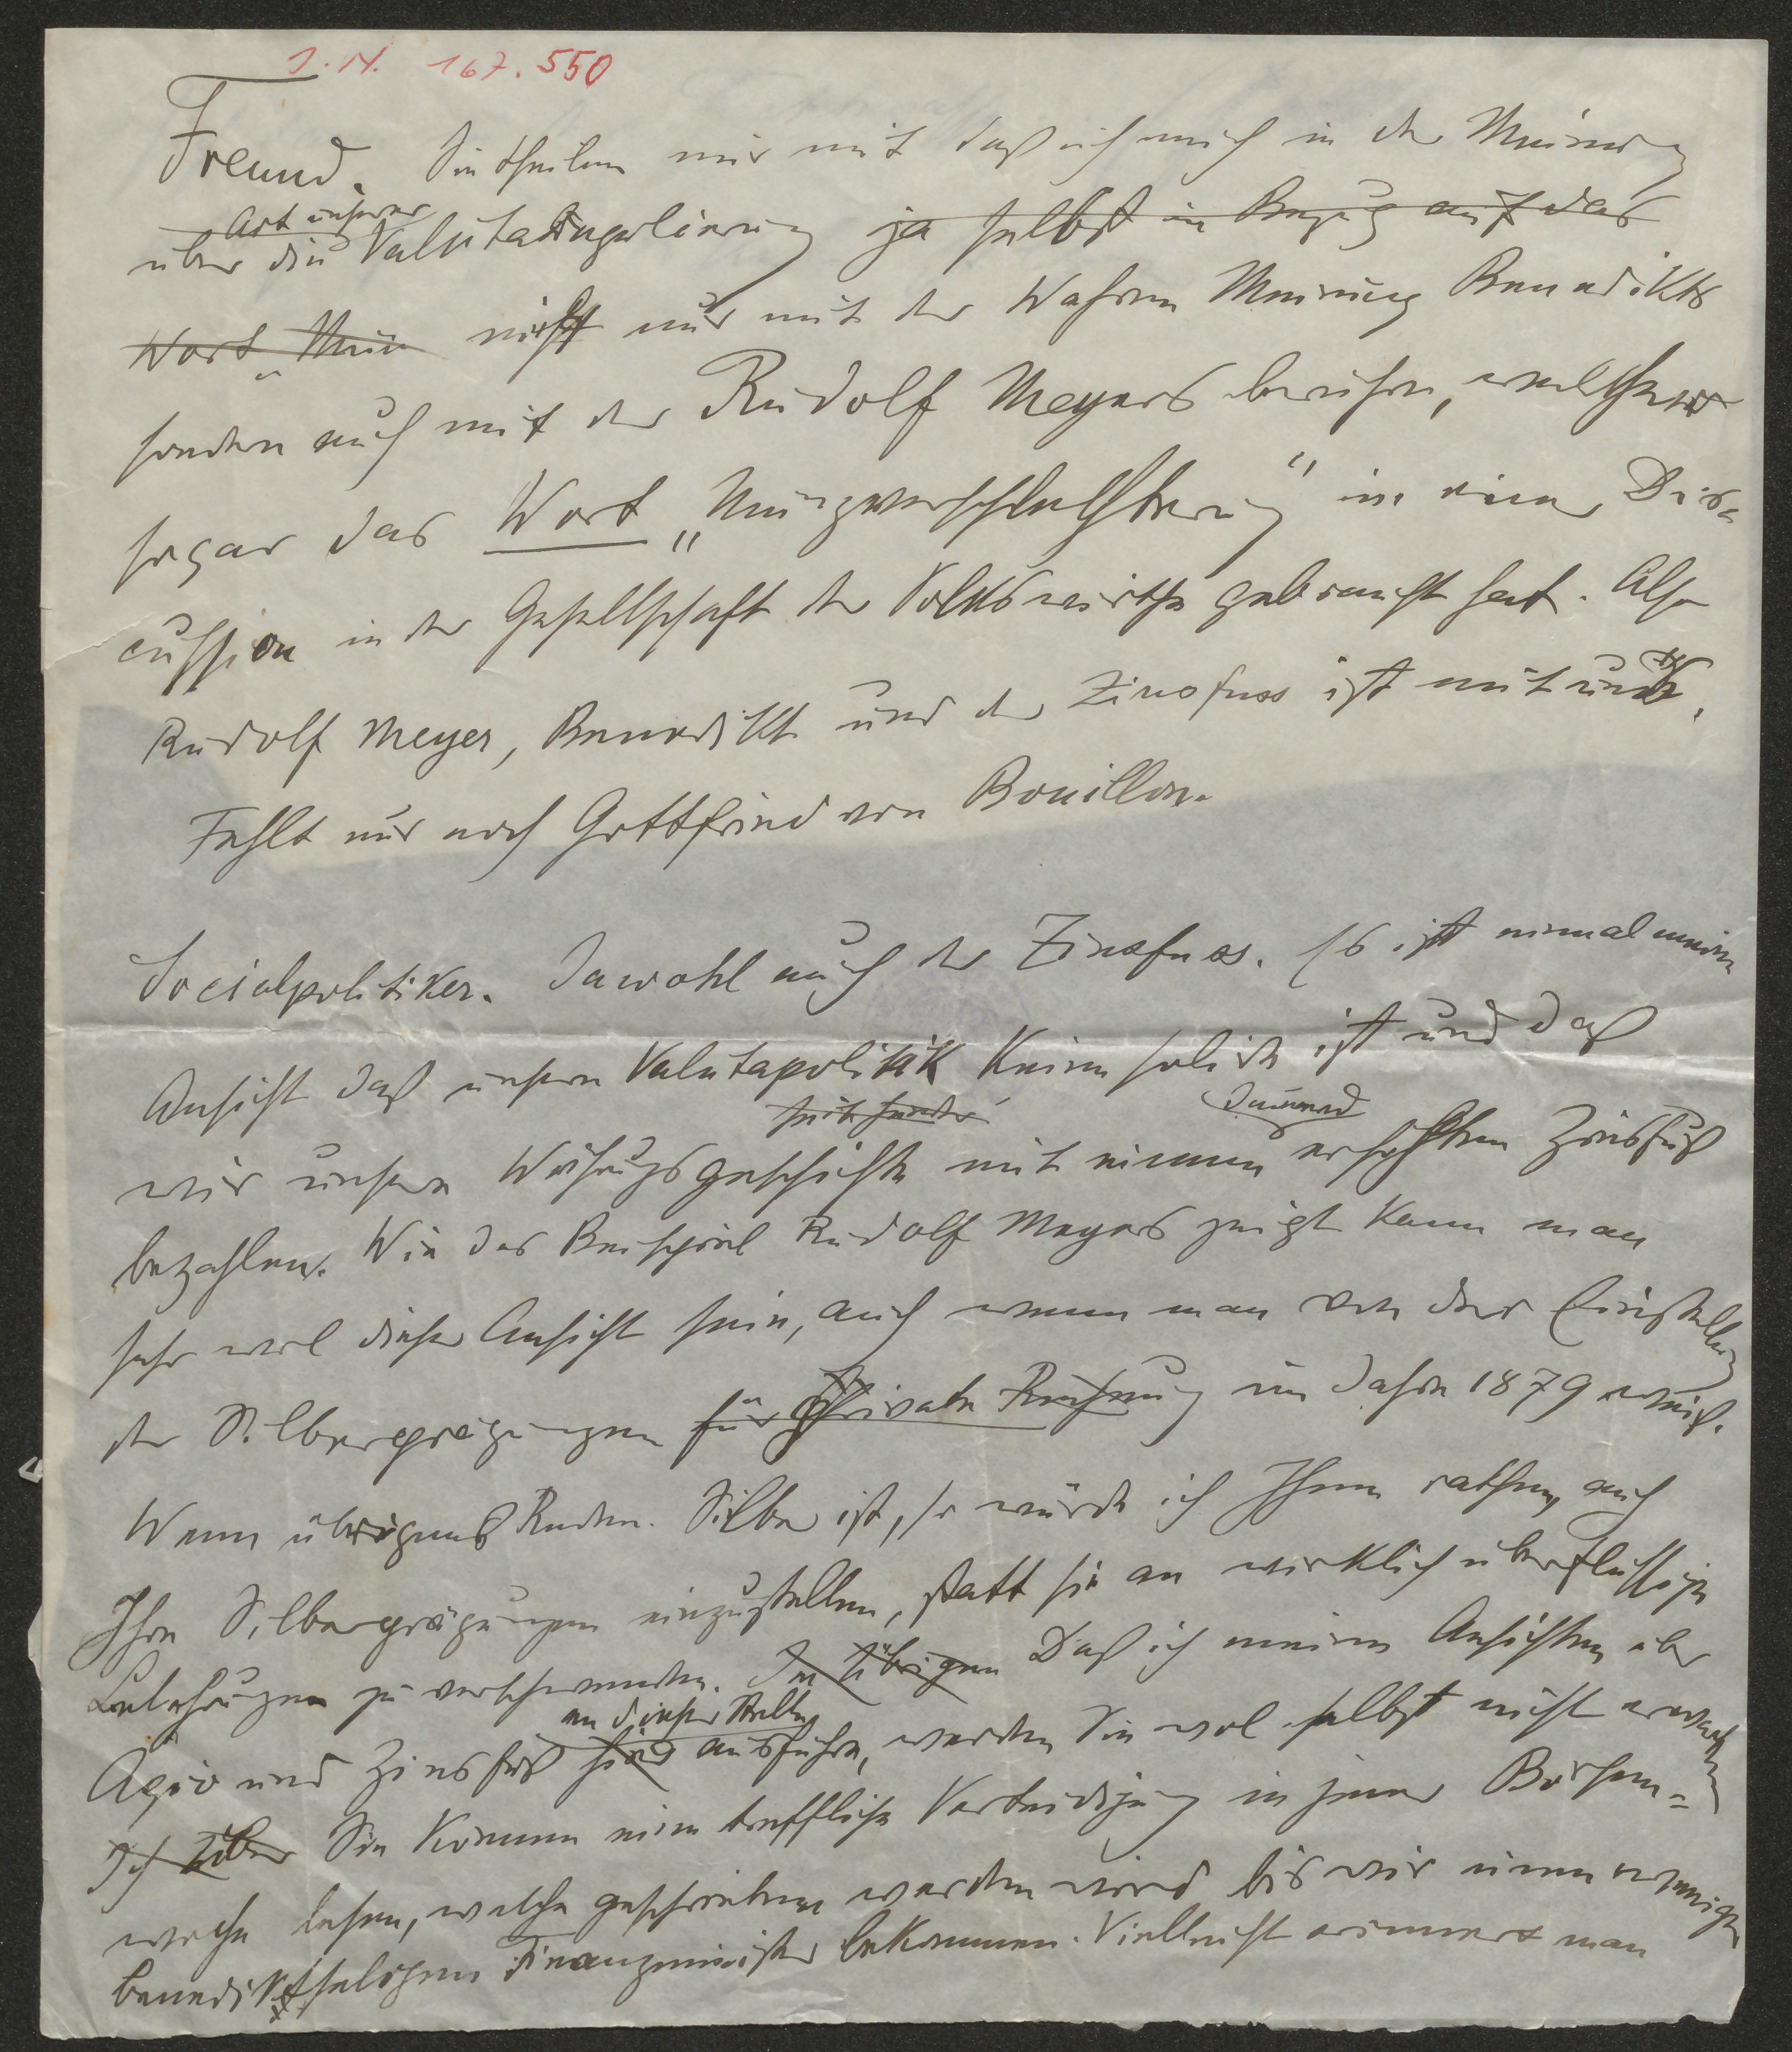 I. N. 167.550
Freund. Sie theilen mir mit daß ich mich in der Meinung
Art unserer
über die Valutaregulierung ja selbst in Bezug auf das
Wort „Mün nicht nur mit der wahren Meinung Benedikts
sondern auch mit der Rudolf Meyers berühre, welcher
sogar das Wort „Münzverschlechterung“ in einer Dis-
cussion in der Gesellschaft der Volkswirthe gebraucht hat. Also
Rudolf Meyer, Benedikt und der Zinsfuss ist mit uns.
Fehlt nur noch Gottfried von Bouillon.
Socialpolitiker. Jawohl auch der Zinsfuss. Es ist einmal meine
Ansicht daß unsere Valutapolitik keine solide ist und daß
dauernd
wir unsere Währungsgeschichte mit einem erhöhten Zinsfuß
bezahlen. Wie das Beispiel Rudolf Meyers zeigt kann man
sehr wol dieser Ansicht sein, auch wenn man von der Einstellung
der Silberprägungen für private Rechnung im Jahre 1879 weiß.
Wenn übrigens Reden Silber ist, so würde ich Ihnen rathen, auch
Ihre Silberprägungen einzustellen, statt sie an wirklich überflüssige
Belehrungen zu verschwenden. Im Übrigen Daß ich meine Ansichten über
an dieser Stelle
Agio und Zinsfuß hier ausführe, werden Sie wol selbst nicht erwarten
Ich über Sie können eine treffliche Verteidigung in jener Börsen-
woche lesen, welche geschrieben werden wird bis wir einen weniger
benediktseligen Finanzminister bekommen. Vielleicht erinnert man